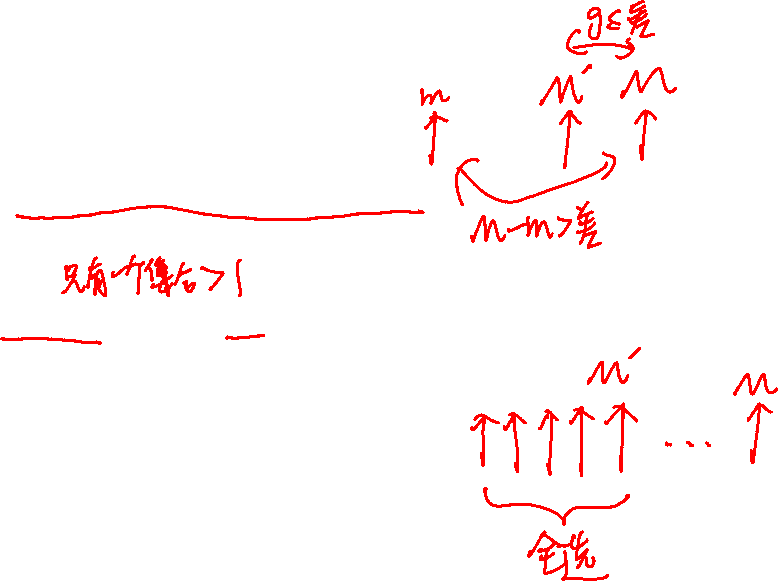 g≤差
m M' M
M-m>差
只有一个集合>1
M' M
...
全选